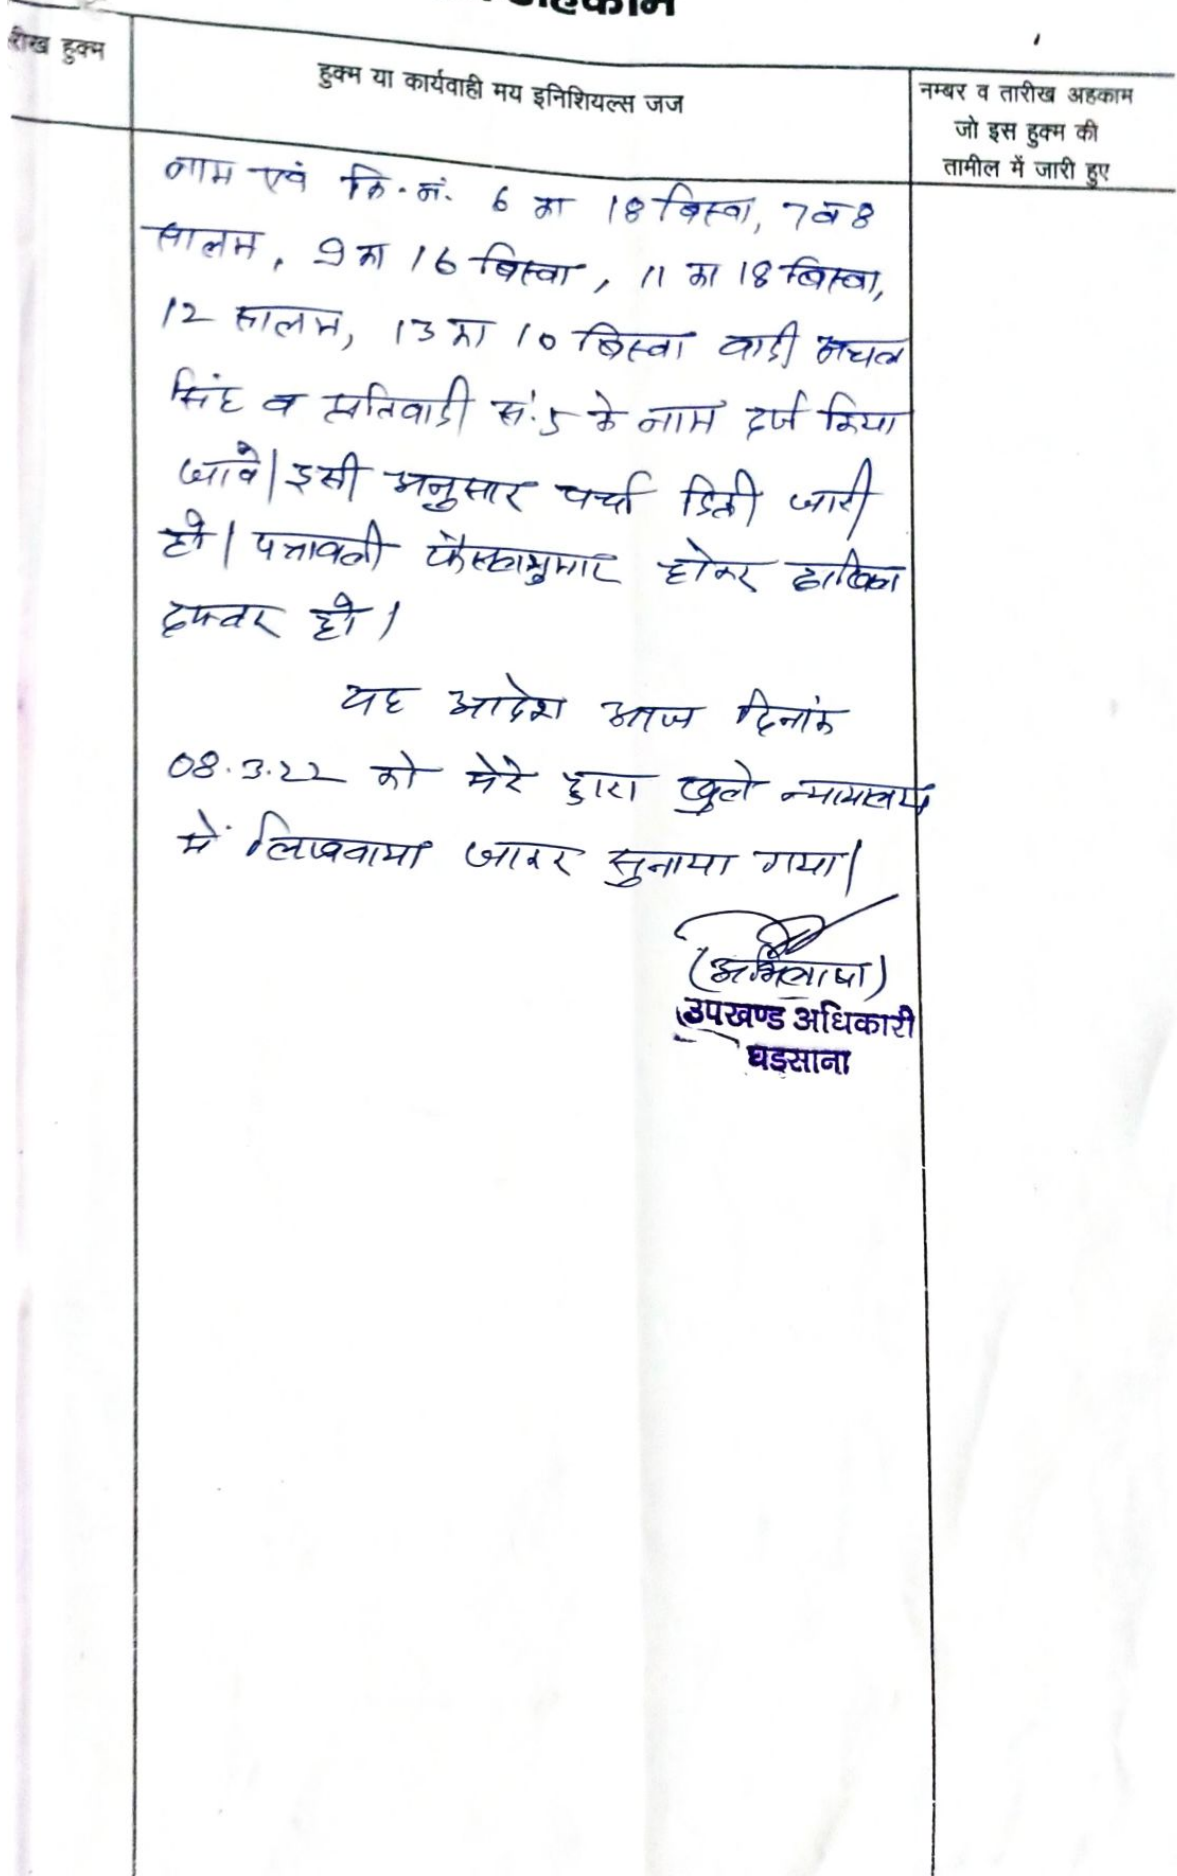 अहकाम
रीख हुक्म
हुक्म या कार्यवाही मय इनिशियल्स जज
नम्बर व तारीख अहकाम
जो इस हुक्म की
तामील में जारी हुए
नाम एवं कि.नं. 6 का 18 बिस्वा, 7 व 8
सालम, 9 का 16 बिस्वा, 11 का 18 बिस्वा,
12 सालम, 13 का 10 बिस्वा वादी अचल
सिंह व प्रतिवादी सं.5 के नाम दर्ज किया
जावे। इसी अनुसार पर्चा डिक्री जारी
हो। पत्रावली फैसलाशुमार होकर दाखिल
दफ्तर हो।
यह आदेश आज दिनांक
08.3.22 को मेरे द्वारा खुले न्यायालय
में लिखवाया जाकर सुनाया गया।
(अभिलाषा)
उपखण्ड अधिकारी
घड़साना